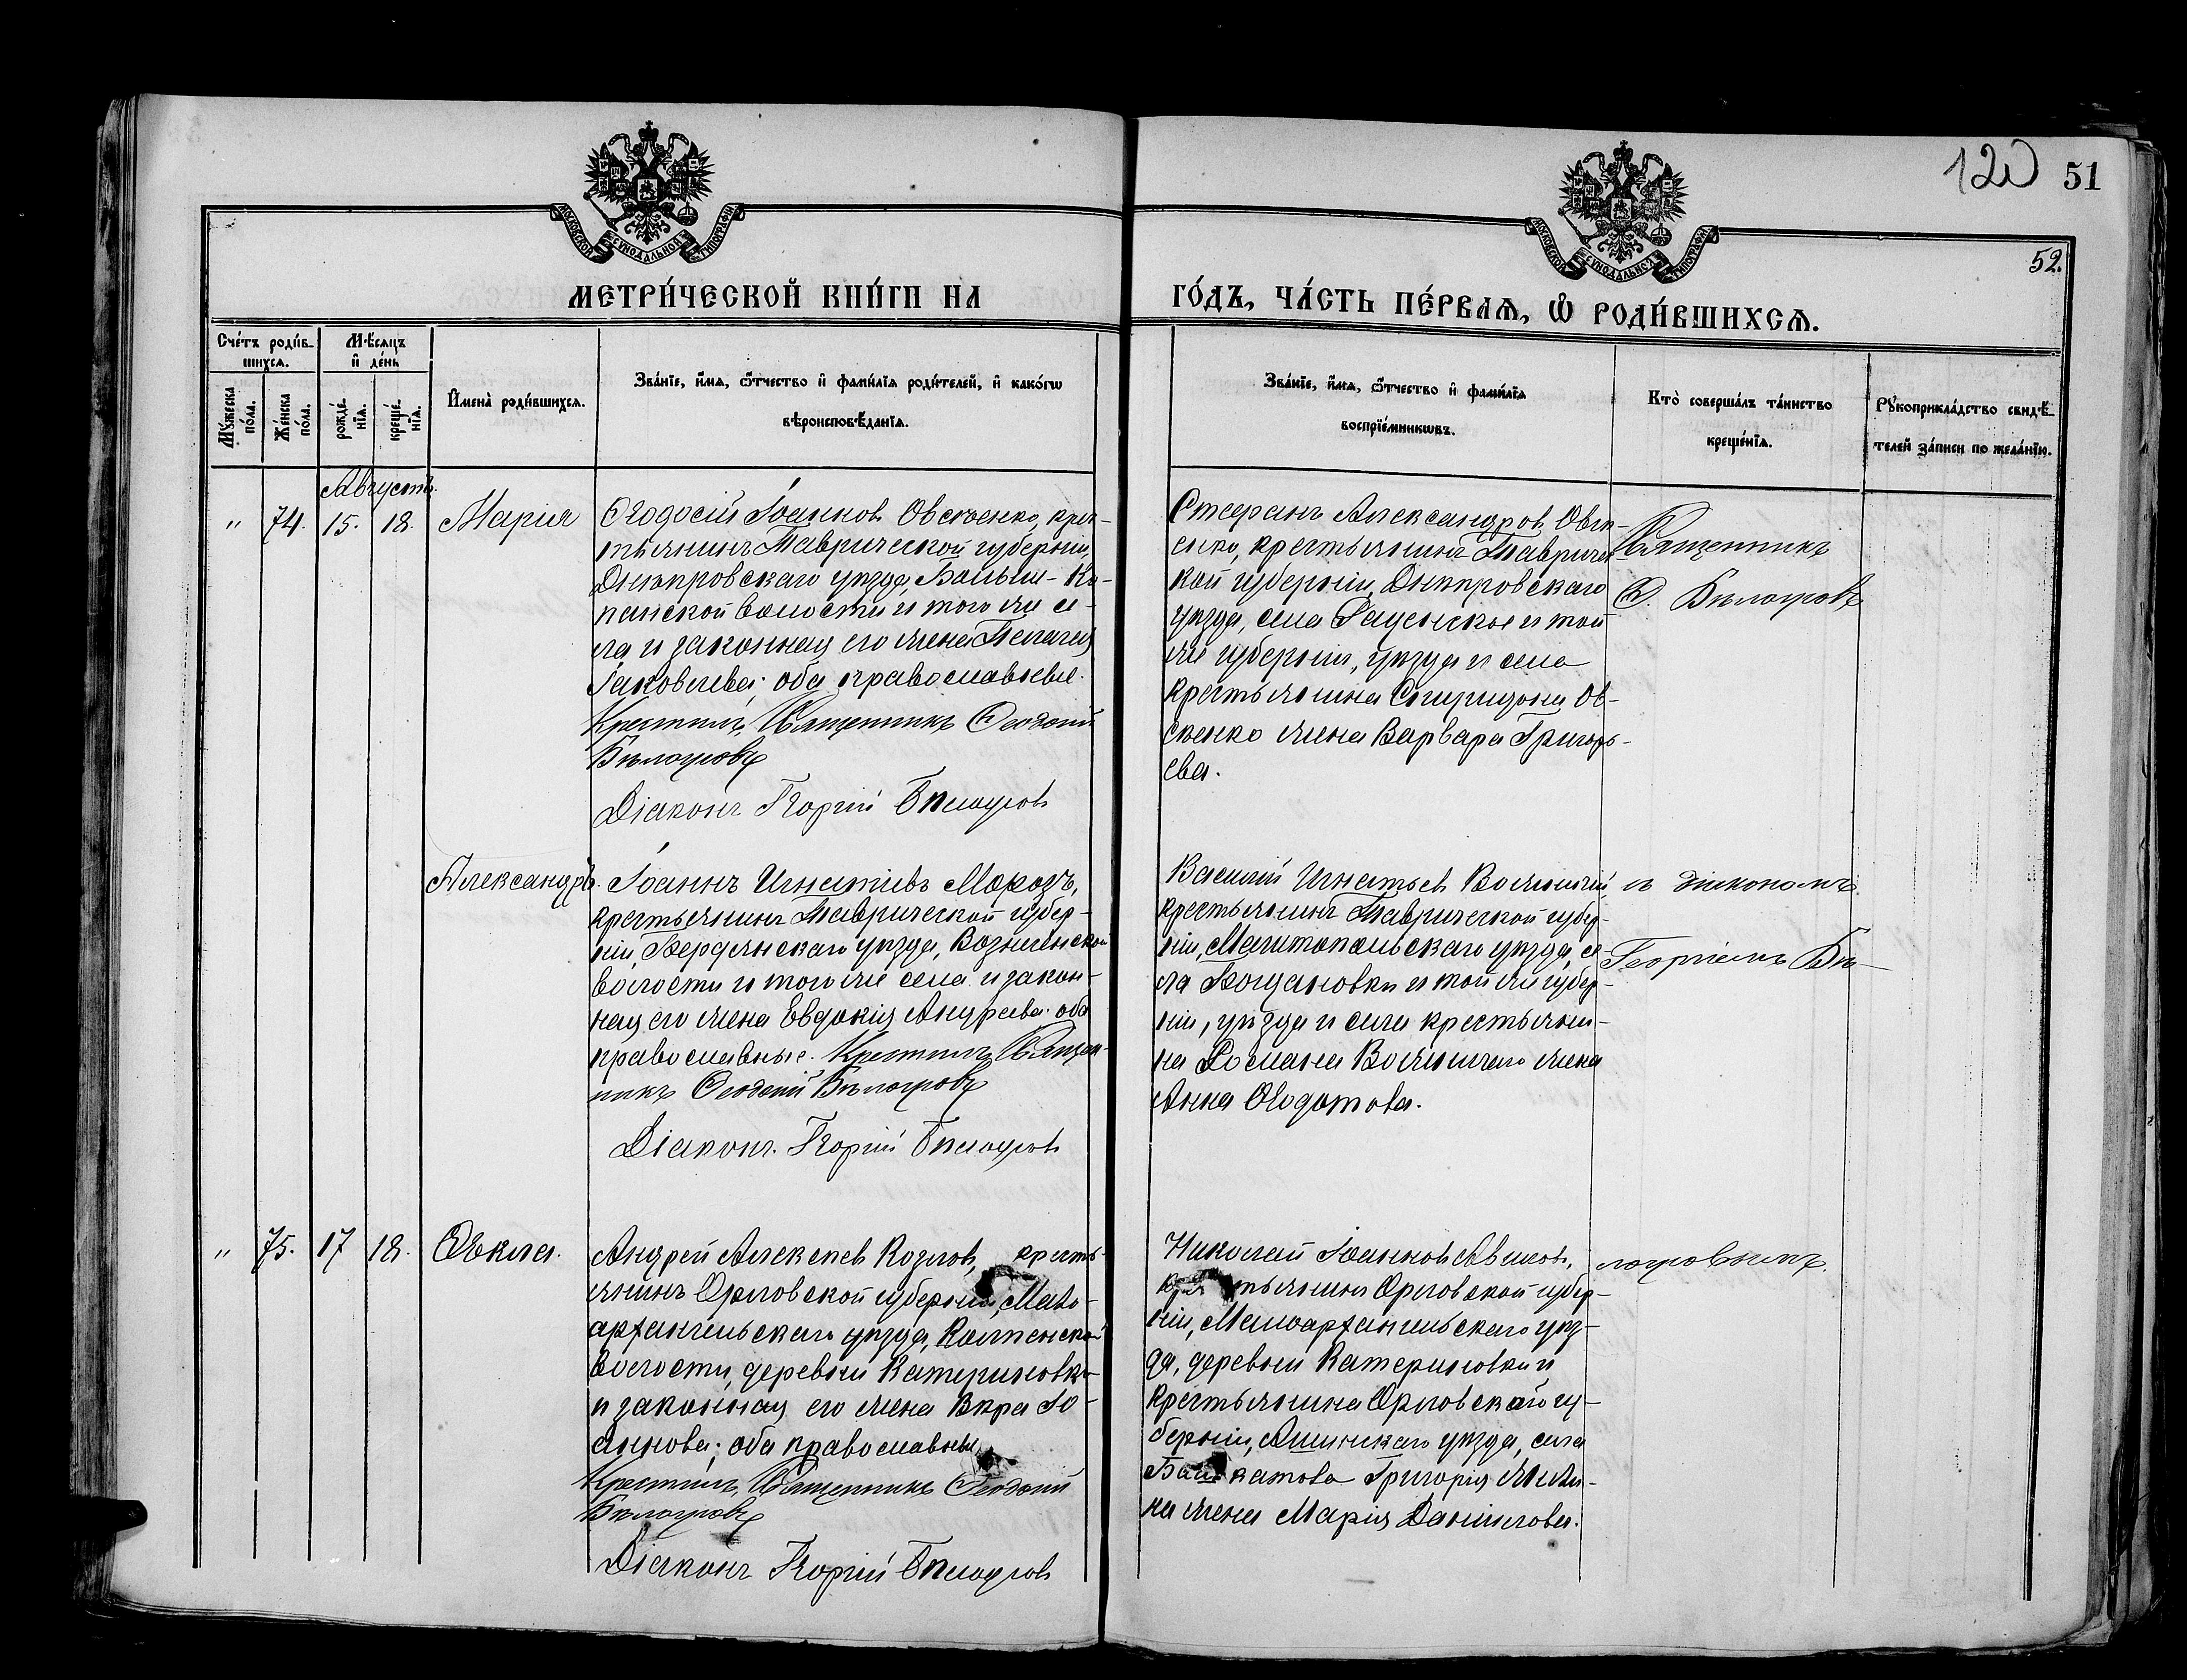 120 51
52.
МОСКОВСКОЙ СѴНОДАЛЬНОЙ ТИПОГРАФІИ
МОСКОВСКОЙ СѴНОДАЛЬНОЙ ТИПОГРАФІИ
МЕТРИ́ЧЕСКОЙ КНИ́ГИ НА
ГО́ДЪ, ЧА́СТЬ ПЕ́РВАѦ, Ѽ РОДИ́ВШИХСѦ.
Сче́тъ роди́в-
шихсѧ.
Мѣ́сѧцъ
и҆ де́нь
Мꙋ́жеска по́ла.
Же́нска по́ла.
рожде́-
нїѧ.
креще́-
нїѧ.
И҆мена̀ роди́вшихсѧ.
Зва́нїе, и҆́мѧ, ѻ҆́тчество и҆ фами́лїѧ роди́телей, и҆ како́гѡ
вѣроисповѣ́данїѧ.
Зва́нїе, и҆́мѧ, ѻ҆́тчество и҆ фами́лїѧ
воспрїе́мникѡвъ.
Кто̀ соверша́лъ та́инство
креще́нїѧ.
Рꙋкоприкла́дство свидѣ́-
телей за́писи по жела́нїю.
Августъ.
" 74. 15. 18. Марія
Ѳеодосій Іоаннов Овсѣенко, крес-
тьянинъ Таврической губерніи,
Днѣпровскаго уѣзда, Больше-Ко-
панской волости и того же се-
ла и законная его жена Пелагея
Іаковлева; оба православные.
Крестилъ, Священникъ Ѳеодосій
Бѣлоусовъ
Діаконъ Георгій Бѣлоусовъ
Стефанъ Александров Овсѣ-
енко, крестьянинъ Тавричес-
кой губерніи, Днѣпровскаго
уѣзда, села и той
же губерніи, уѣзда и села
крестьянина Спиридона Ов-
сѣенко жена Варвара Григорь-
ева.
Священникъ
Ѳ. Бѣлоусовъ
Александръ.
Іоаннъ Игнатіевъ Морозъ,
крестьянинъ Таврической губер-
ніи, Бердянскаго уѣзда, Вознесенской
волости и того же села и закон-
ная его жена Евдокія Андреева; оба
православные. Крестилъ Священ-
никъ Ѳеодосій Бѣлоусовъ
Діаконъ Георгій Бѣлоусовъ
Василій Игнатьев
крестьянинъ Таврической губер-
ніи, Мелитопольскаго уѣзда, се-
ла Богдановки и той же губер-
ніи, уѣзда и села крестьяни-
на Романа жена
Анна Ѳеодотова.
съ діакономъ
Георгіемъ Бѣ-
" 75. 17 18. Ѳекла.
Андрей Алексѣев Козлов, кресть-
янинъ Орловской губерніи, Мало-
архангельскаго уѣзда, Колпенской
волости, деревни Катериновки
и законная его жена Вѣра Іо-
аннова; оба православные.
Крестилъ, Священникъ Ѳеодосій
Бѣлоусовъ
Діаконъ Георгій Бѣлоусовъ
Николай Іоаннов
крестьянинъ Орловской губер-
ніи, Малоархангельскаго уѣз-
да, деревни Катериновки и
крестьянина Орловской гу-
берніи, уѣзда, села
Григорія
на жена Марія Даніилова.
лоусовымъ.